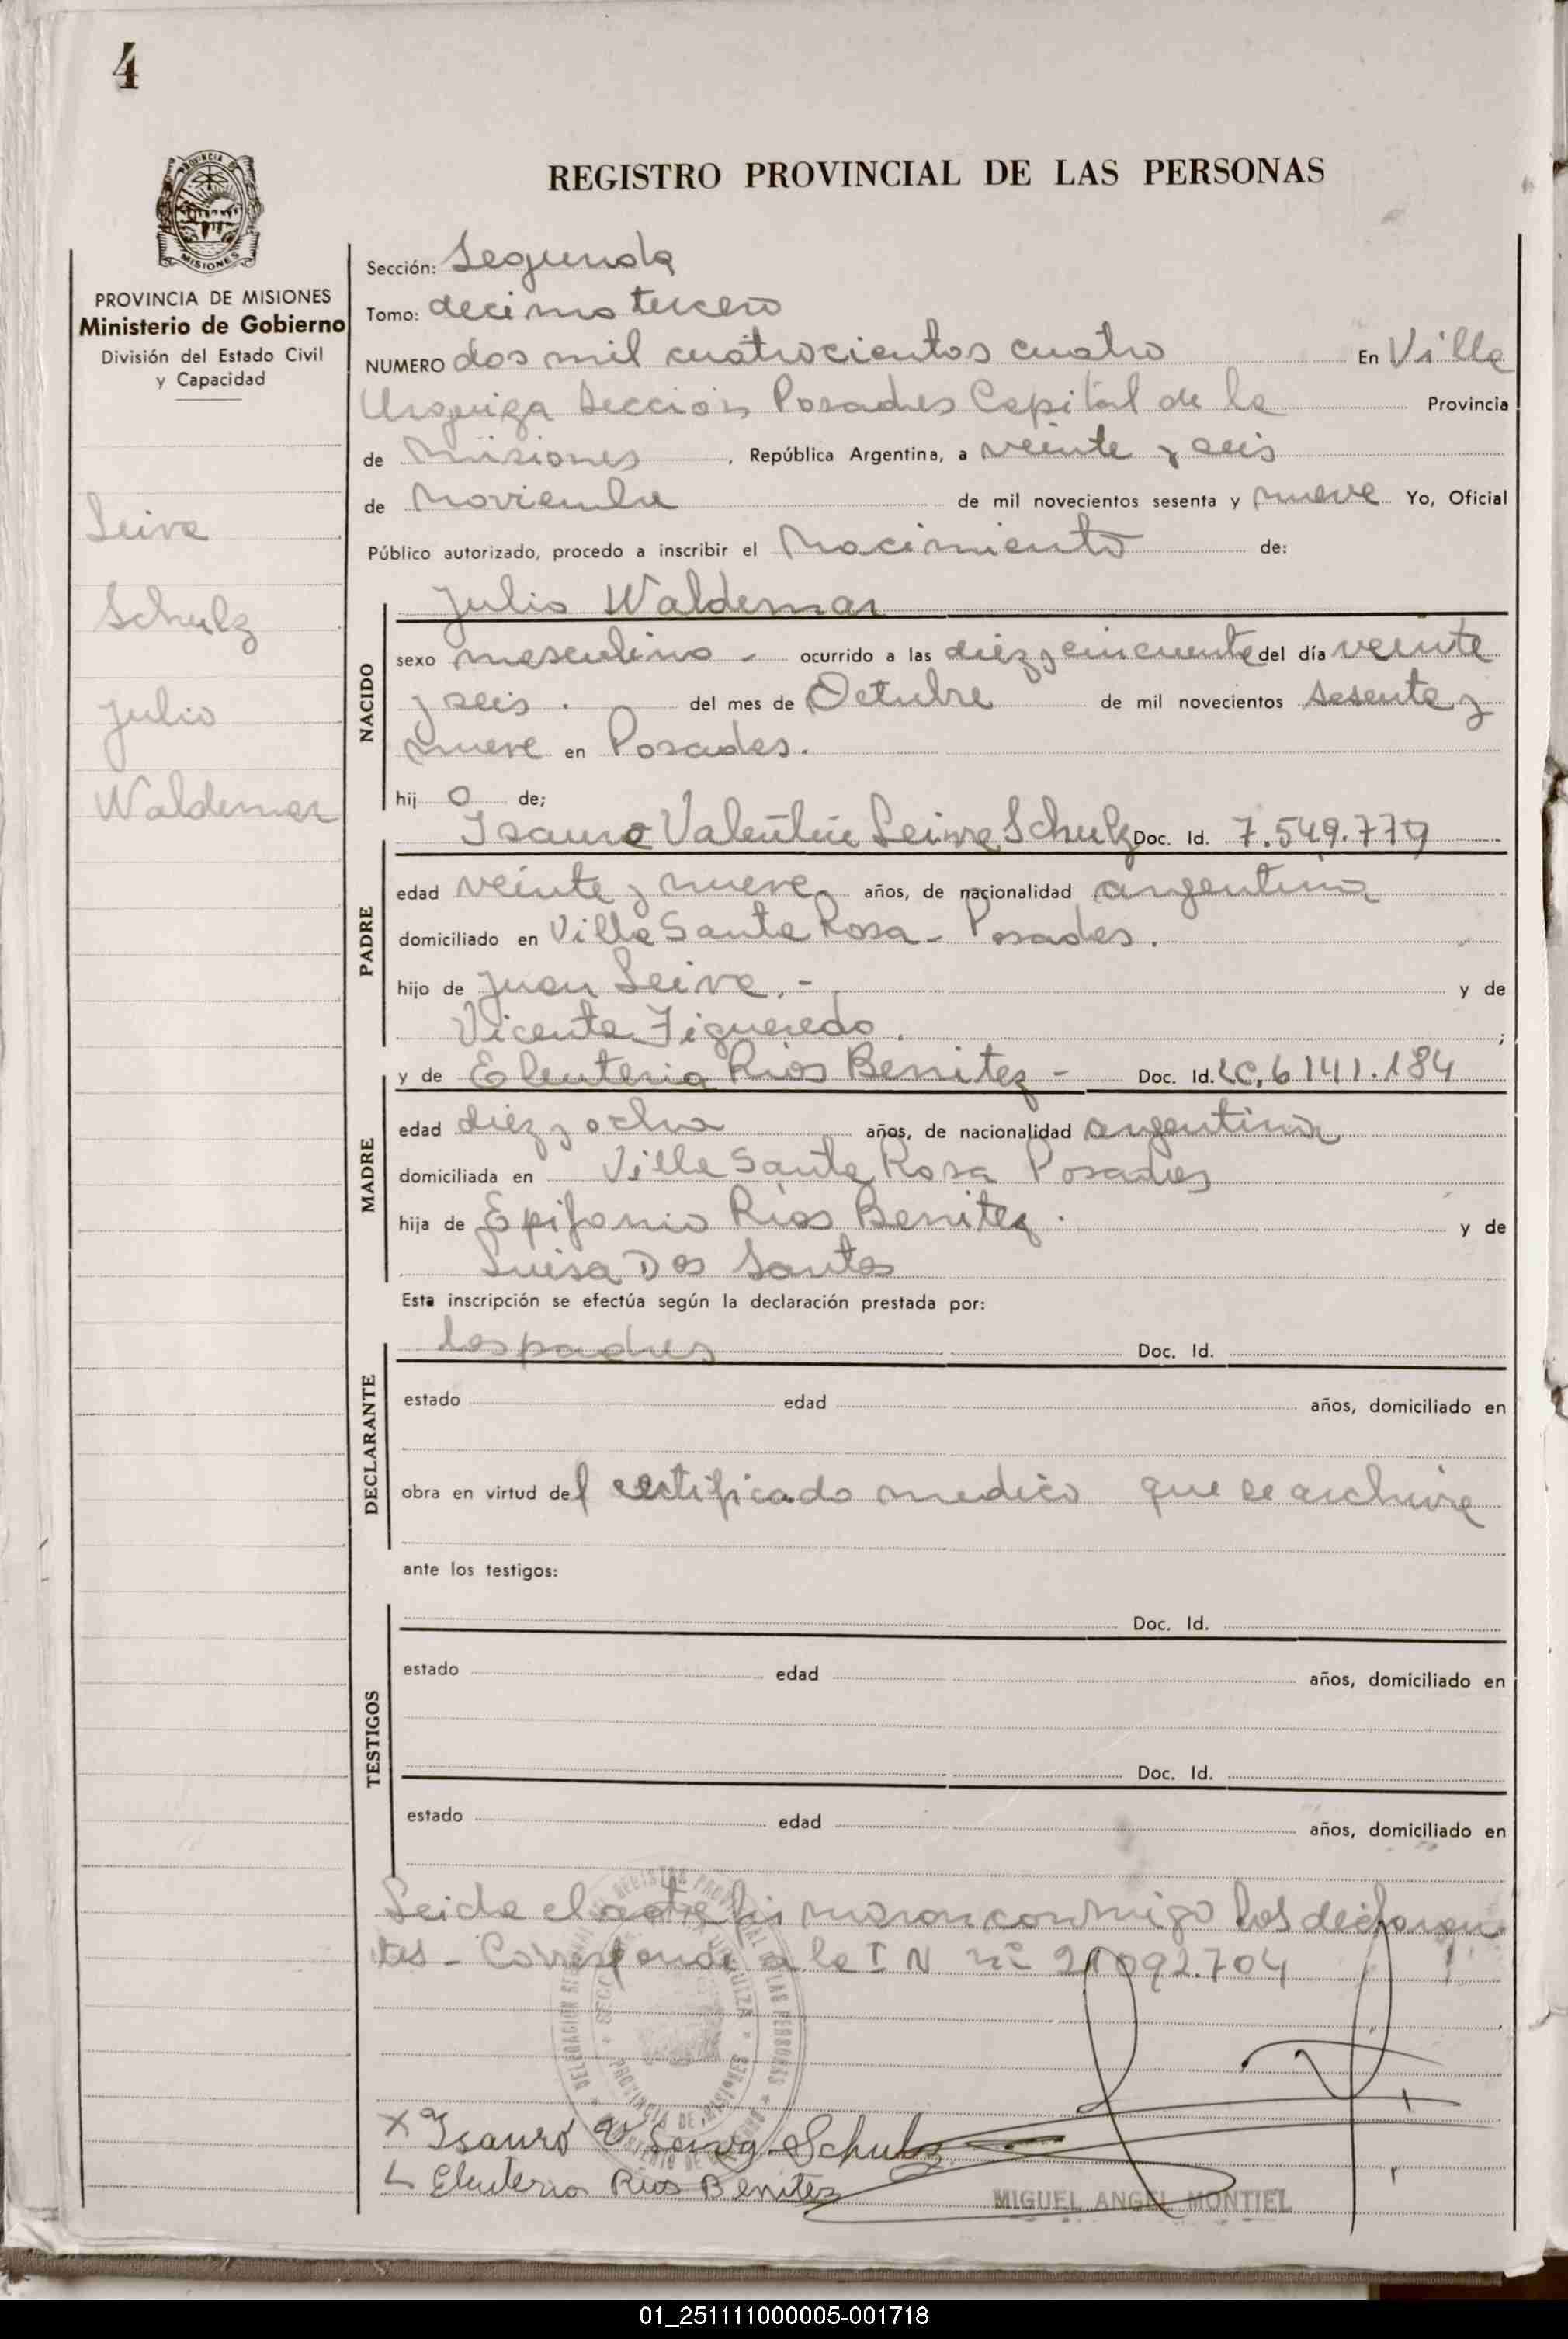 4
REGISTRO PROVINCIAL DE LAS PERSONAS
MISIONES
PROVINCIA DE MISIONES
Ministerio de Gobierno
División del Estado Civil
y Capacidad
Leiva
Schulz
Julio
Waldemar
Sección: Segunda
Tomo: decimo tercero
NUMERO dos mil cuatrocientos cuatro En Villa
Urquiza Seccion Posadas Capital de la Provincia
de Misiones, República Argentina, a veinte y seis
de Noviembre de mil novecientos sesenta y nueve Yo, Oficial
Público autorizado, procedo a inscribir el Nacimiento de:
NACIDO
Julio Waldemar
sexo masculino - ocurrido a las diez y cincuenta del día veinte
y seis. del mes de Octubre de mil novecientos sesenta y
nueve en Posadas.
hij o de;
PADRE
Isauro Valentin Leiva Schulz Doc. Id. 7.549.779
edad veinte y nueve años, de nacionalidad argentina
domiciliado en Villa Santa Rosa - Posadas.
hijo de Juan Leiva. - y de
Vicenta Figueredo. ;
MADRE
y de Eleuteria Rios Benitez - Doc. Id. LC. 6141.184
edad diez y ocho años, de nacionalidad argentina
domiciliada en Villa Santa Rosa Posadas
hija de Epifanio Rios Benitez. y de
Luisa Dos Santos
Esta inscripción se efectúa según la declaración prestada por:
DECLARANTE
los padres Doc. Id.
estado edad años, domiciliado en
obra en virtud del certificado medico que se archiva
ante los testigos:
TESTIGOS
Doc. Id.
estado edad años, domiciliado en
Doc. Id.
estado edad años, domiciliado en
Leida el acta firmaron conmigo los declaran
tes - Corresponde a la I N nº 21092.704
X Isauro V Leiva Schulz
Eleuteria Rios Benitez
MIGUEL ANGEL MONTIEL
01_251111000005-001718